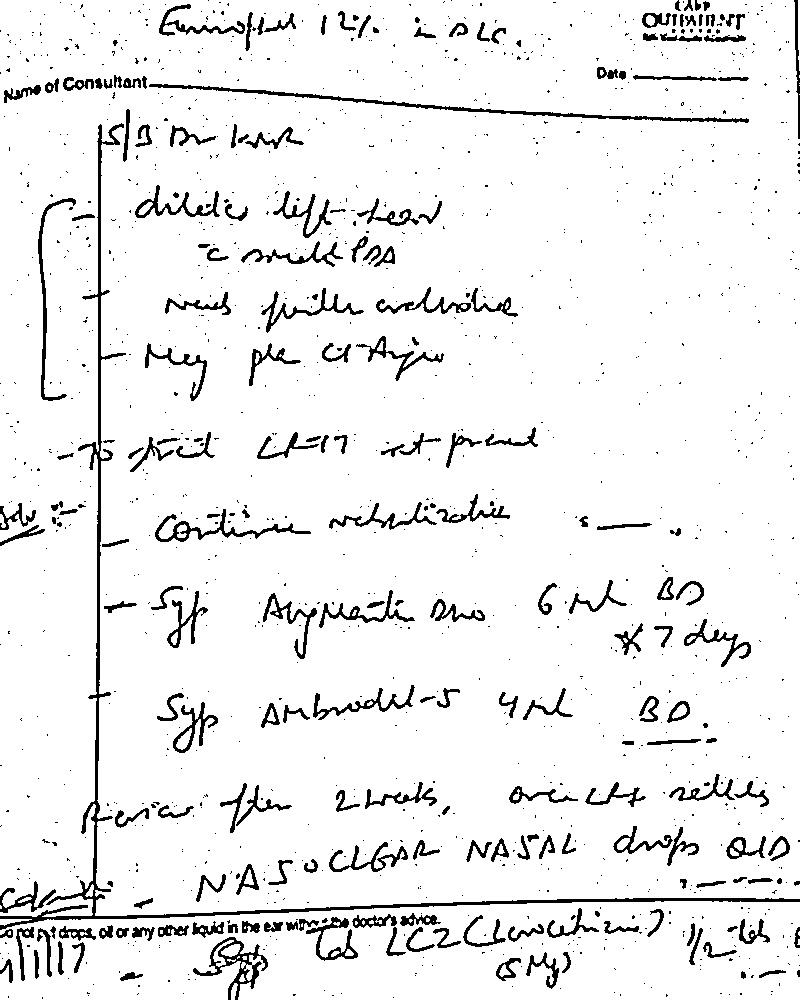 Eosinophil 12% in DLC.
OUTPATIENT
Name of Consultant
Date
S/B Dr
- dilated left heart
c small PDA
- needs further evaluation
- May plan CT Angio
- To treat LRTI at present
Adv :-
- Continue nebulization
- Syp Augmentin Duo 6 ml BD
x 7 days
- Syp Ambrodil-S 4 ml BD.
Review after 2 weeks, once LRTI settles
- NASOCLEAR NASAL drops QID
Do not put drops, oil or any other liquid in the ear without the doctor's advice.
/1/17 - Tab LCZ (Levocetirizine) 1/2 tab
(5 Mg)